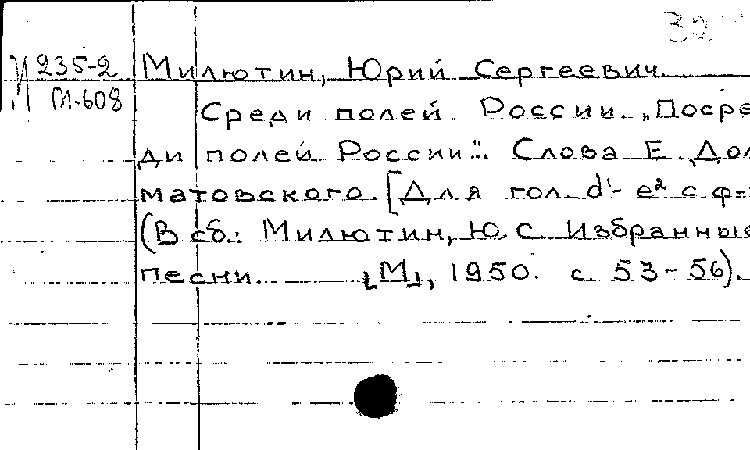 32
М 235-2 Милютин, Юрий Сергеевич.
М-608 Среди полей России. „Посре
ди полей России". Слова Е. Дол
матовского. [Для гол. d¹- e² с ф-
(В сб.: Милютин, Ю. С. Избранные
песни. [М], 1950. с. 53-56).